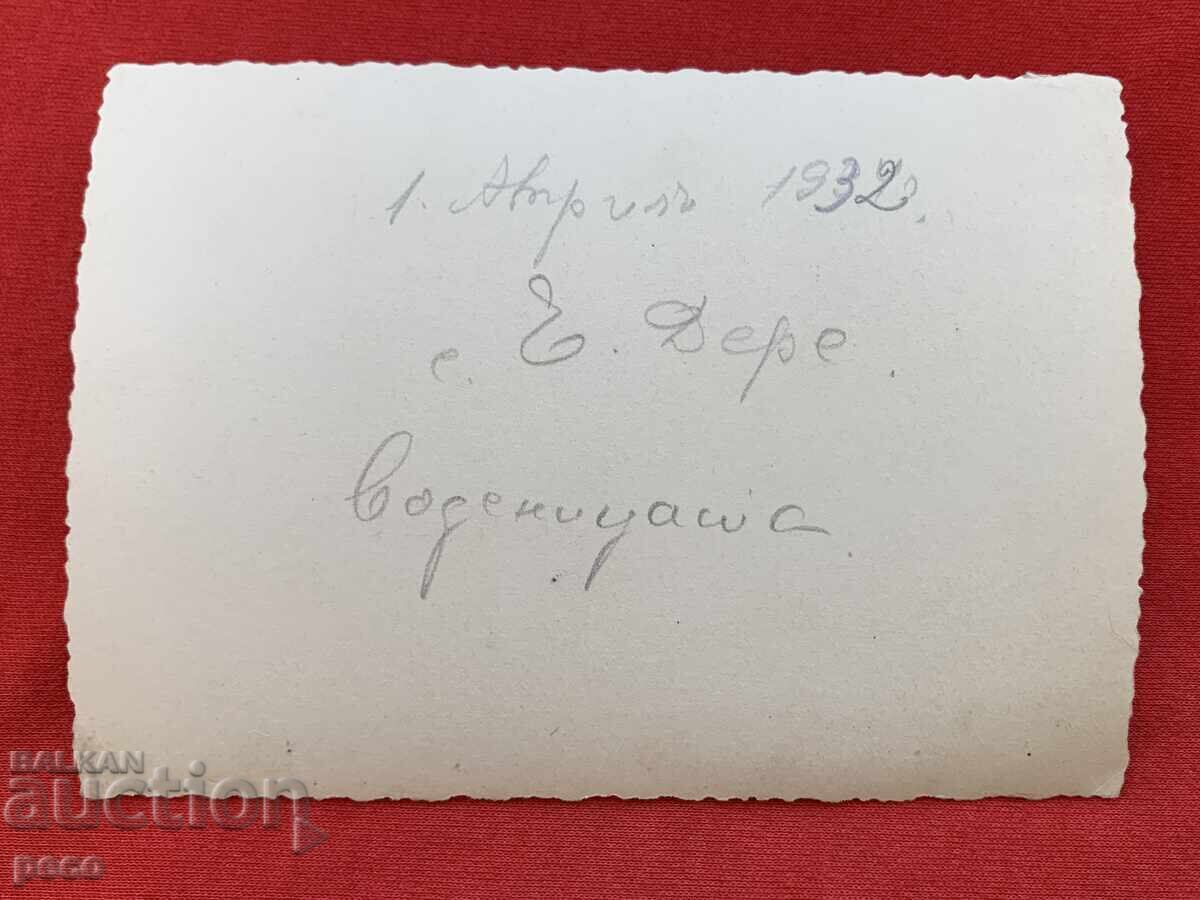 1. Априлъ 1932 г.
с. Е. Дере
воденицата
BALKAN
auction
peco